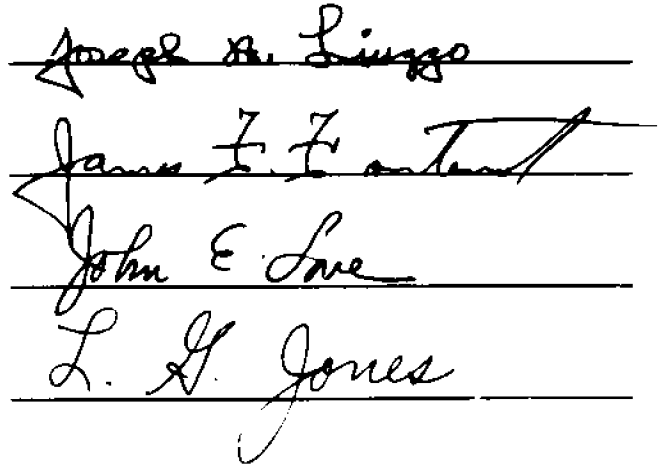 Joseph A. Liuzzo
James F. Fontenot
John E. Love
L. G. Jones